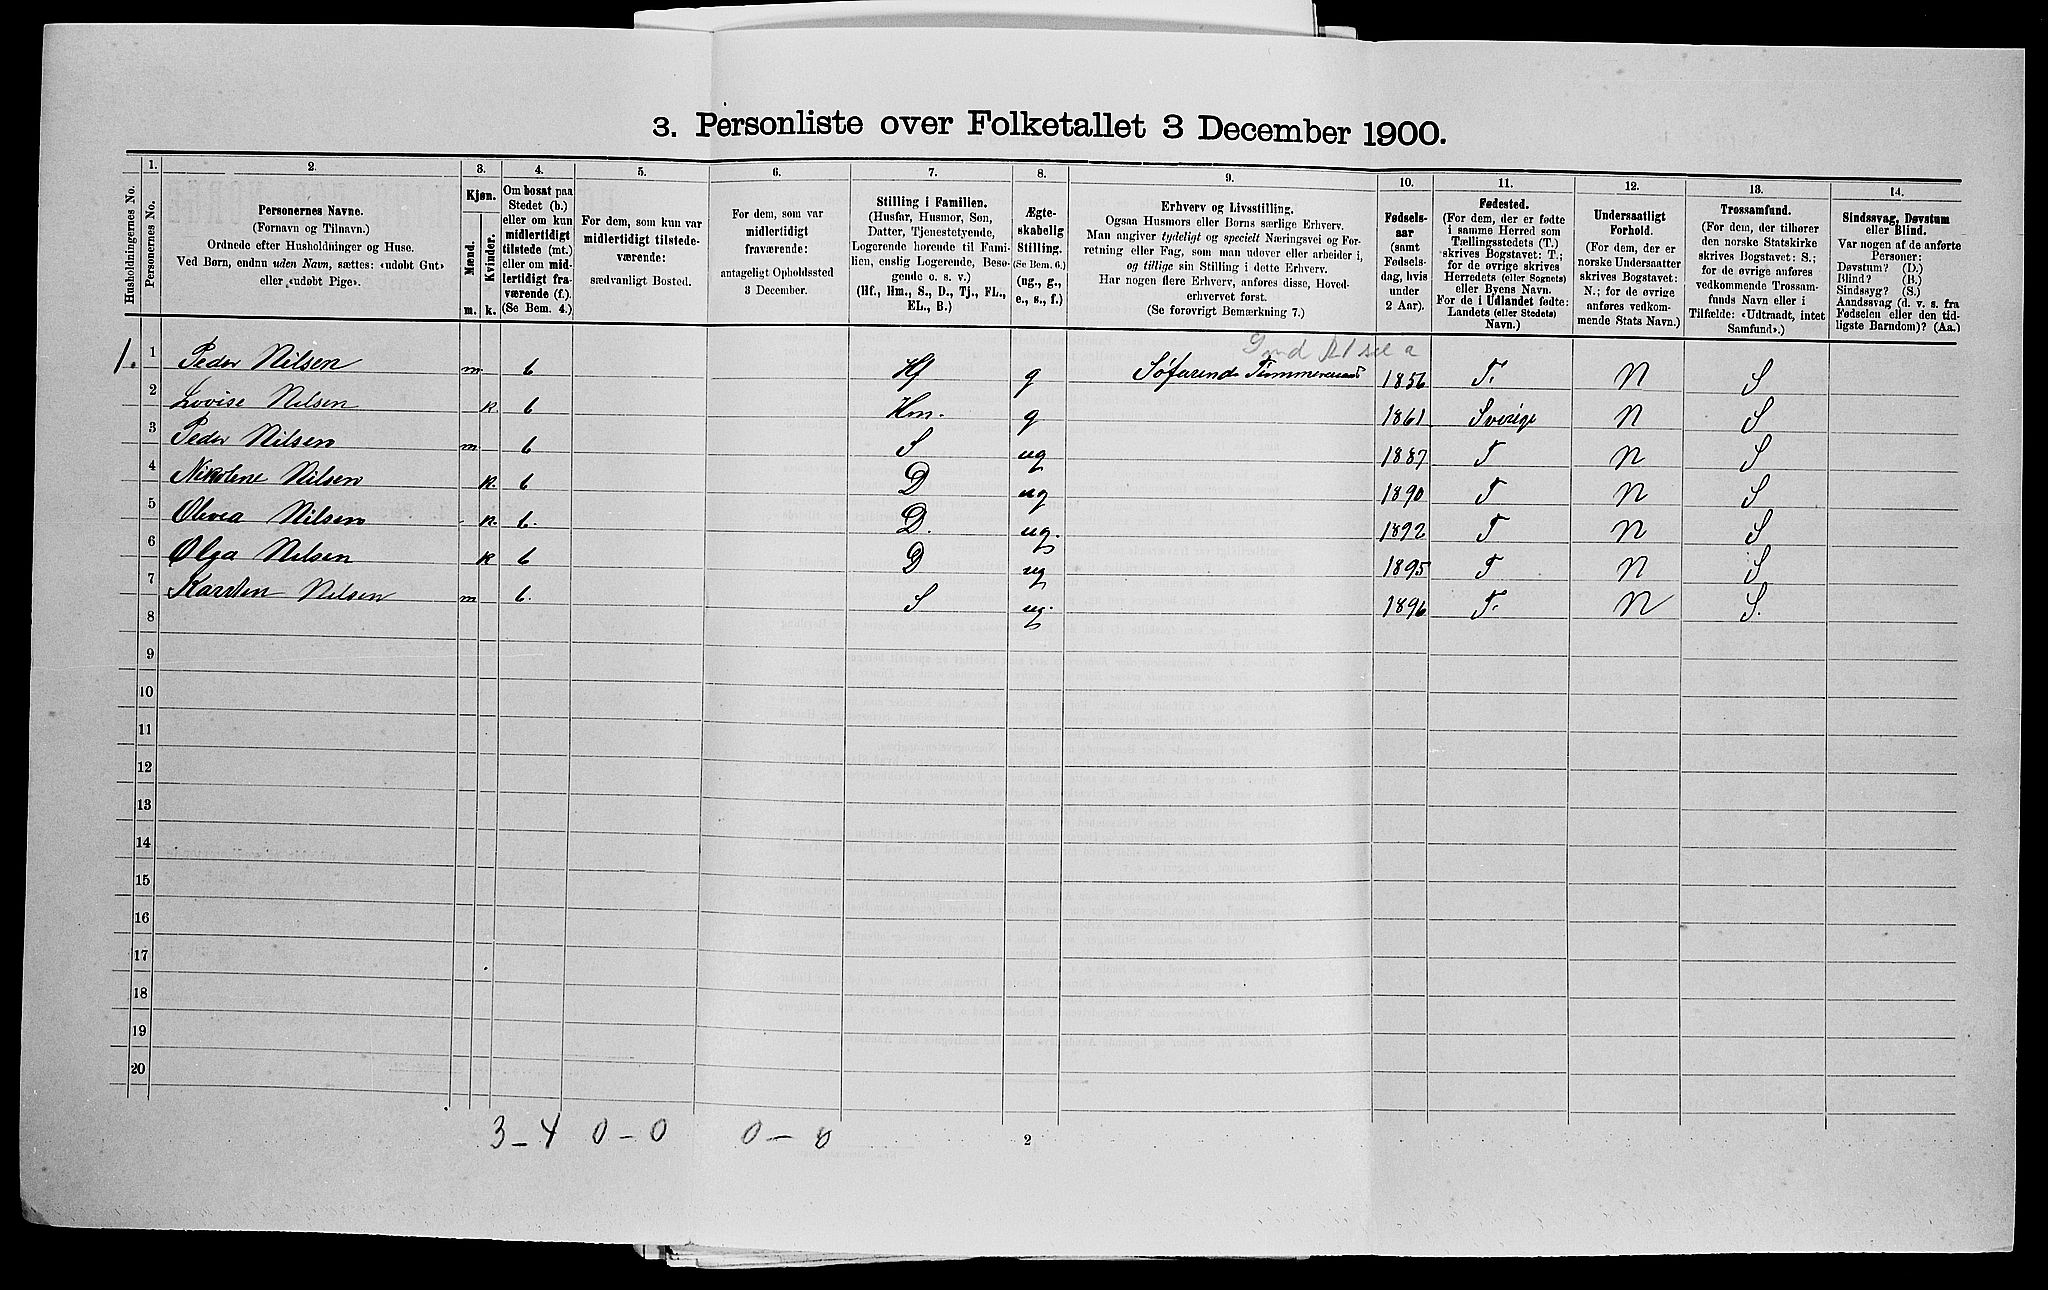 3. Personliste over Folketallet 3 December 1900.
Husholdningernes No.
1. Personernes No.
2. Personernes Navne. (Fornavn og Tilnavn). Ordnede efter Husholdninger og Huse. Ved Børn, endnu uden Navn, sættes: «udøbt Gut» eller «udøbt Pige».
3. Kjøn. Mænd. m. Kvinder. k.
4. Om bosat paa Stedet (b.) eller om kun midlertidigt tilstede (mt.) eller om midlertidigt fraværende (f.). (Se Bem. 4.)
5. For dem, som kun var midlertidigt tilstedeværende: sædvanligt Bosted.
6. For dem, som var midlertidigt fraværende: antageligt Opholdssted 3 December.
7. Stilling i Familien. (Husfar, Husmor, Søn, Datter, Tjenestetyende, Logerende hørende til Familien, enslig Logerende, Besøgende o. s. v.) (Hf., Hm., S., D., Tj., FL., EL., B.)
8. Ægteskabelig Stilling. (Se Bem. 6.) (ug., g., e., s., f.)
9. Erhverv og Livsstilling. Ogsaa Husmors eller Børns særlige Erhverv. Man angiver tydeligt og specielt Næringsvei og Forretning eller Fag, som man udøver eller arbeider i, og tillige sin Stilling i dette Erhverv. Har nogen flere Erhverv, anføres disse, Hovederhvervet først. (Se forøvrigt Bemærkning 7.)
10. Fødselsaar (samt Fødselsdag, hvis under 2 Aar).
11. Fødested. (For dem, der er fødte i samme Herred som Tællingsstedets (T.) skrives Bogstavet: T.; for de øvrige skrives Herredets (eller Sognets) eller Byens Navn. For de i Udlandet fødte: Landets (eller Stedets) Navn.)
12. Undersaatligt Forhold. (For dem, der er norske Undersaatter skrives Bogstavet: N.; for de øvrige anføres vedkommende Stats Navn.)
13. Trossamfund. (For dem, der tilhører den norske Statskirke skrives Bogstavet: S.; for de øvrige anføres vedkommende Trossamfunds Navn eller i Tilfælde: «Udtraadt, intet Samfund».)
14. Sindssvag, Døvstum eller Blind. Var nogen af de anførte Personer: Døvstum? (D.) Blind? (B.) Sindssyg? (S.) Aandssvag (d. v. s. fra Fødselen eller den tidligste Barndom)? (Aa.)
1. 1 Peder Nilsen m. b Hf g Søfarende Tømmermand 1856 T. N S
2 Lovise Nilsen k. b Hm. g 1861 Sverige N S
3 Peder Nilsen m. b S ug 1887 T N S
4 Nikolene Nilsen k. b D ug 1890 T N S
5 Olivia Nilsen k. b. D. ug. 1892 T N S
6 Olga Nilsen k b D ug 1895 T N S
7 Karsten Nilsen m b. S ug. 1896 T. N S.
8
9
10
11
12
13
14
15
16
17
18
19
20
3-4 0-0 0-0
2